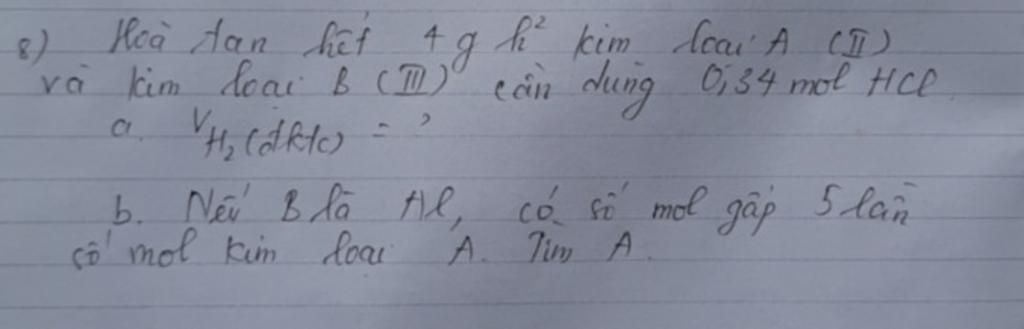 8) Hoà tan hết 4 g h² kim loại A (II)
và kim loại B (III) cần dùng 0,34 mol HCl.
a. V H₂ (đktc) = ?
b. Nếu B là Al, có số mol gấp 5 lần
số mol kim loại A. Tìm A.